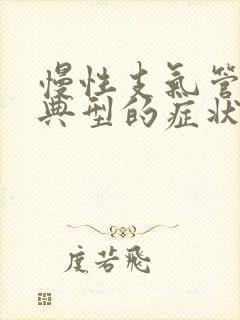 慢性支氣管
典型的症狀
度若飛